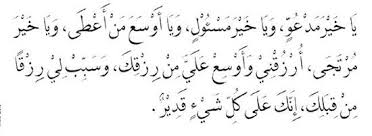 يَا خَيْرَ مَدْعُوٍّ، وَيَا خَيْرَ مَسْئُوْلٍ، وَيَا أَوْسَعَ مَنْ أَعْطَى، وَيَا خَيْرَ
مُرْتَجَى، أُرْزُقْنِيْ وَأَوْسِعْ عَلَيَّ مِنْ رِزْقِكَ، وَسَبِّبْ لِيْ رِزْقًا
مِنْ قِبَلِكَ، إِنَّكَ عَلَى كُلِّ شَيْءٍ قَدِيْرٌ.